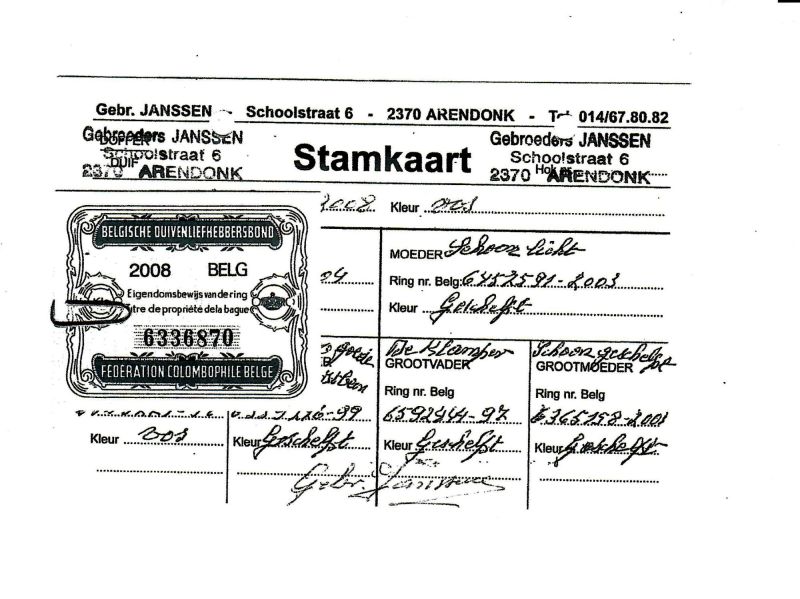 Gebr. JANSSEN - Schoolstraat 6 - 2370 ARENDONK - 014/67.80.82
Gebroeders JANSSEN
DOFFER
Schoolstraat 6
DUIF
2370 ARENDONK
Stamkaart
Gebroeders JANSSEN
Schoolstraat 6
2370 ARENDONK
2008 Kleur vos
BELGISCHE DUIVENLIEFHEBBERSBOND
2008 BELG
Eigendomsbewijs van de ring
Titre de propriété de la bague
6336870
FEDERATION COLOMBOPHILE BELGE
04
MOEDER Schoon licht
Ring nr. Belg: 6452591-2003
Kleur Geschelft
goede
De Klamper
GROOTVADER
Ring nr. Belg
6592444-97
Kleur Geschelft
Schoon geschelft
GROOTMOEDER
Ring nr. Belg
6365158-2001
Kleur Geschelft
Kleur vos
126-99
Kleur Geschelft
Gebr. Janssen